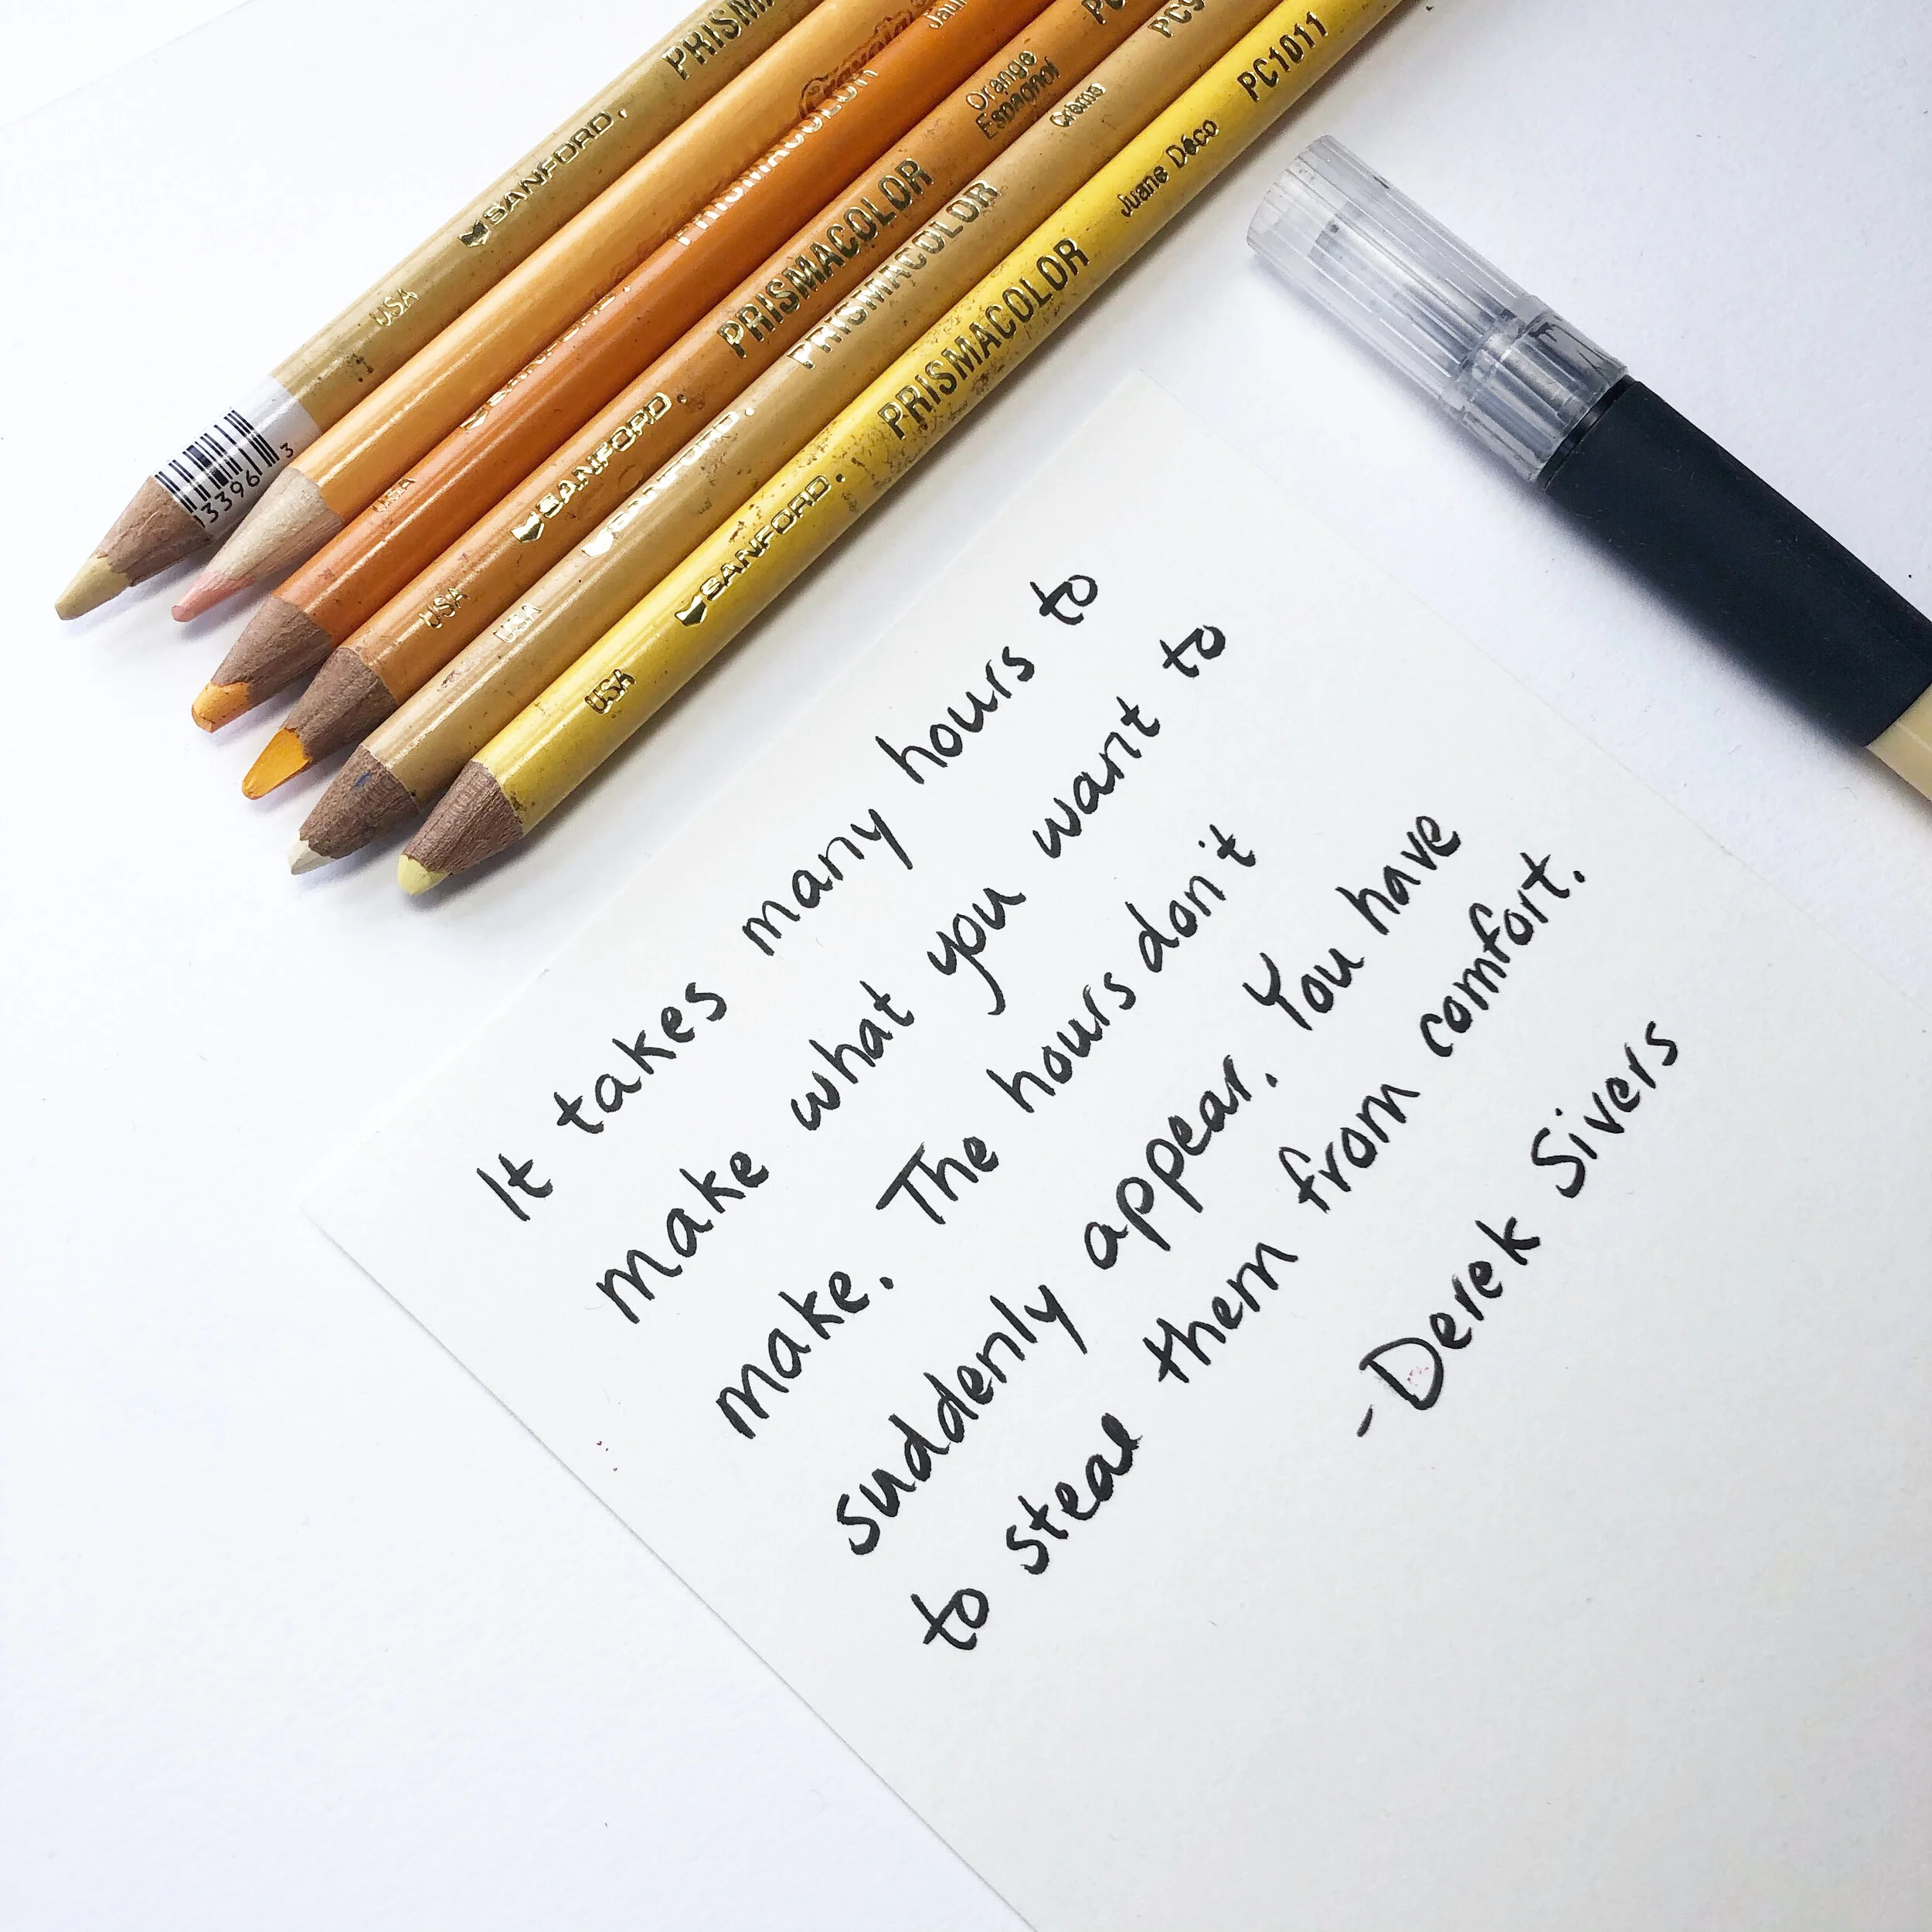 PRISMA
SANFORD.
USA
13396 3
Crayola
PRISMACOLOR
USA
Orange
Espagnol
PRISMACOLOR
SANFORD.
USA
Crème
PRISMACOLOR
SANFORD.
USA
PC1011
Juane Déco
PRISMACOLOR
SANFORD.
USA
It takes many hours to
make what you want to
make. The hours don't
suddenly appear. You have
to steal them from comfort.
-Derek Sivers